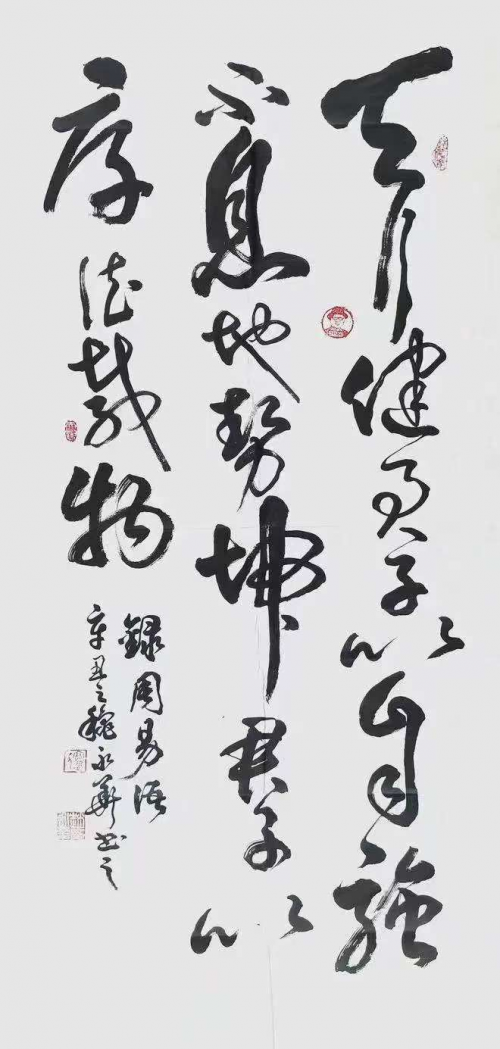 天行健君子以自强
不息地势坤君子以
厚德载物
録周易语
辛丑之穐永華书之